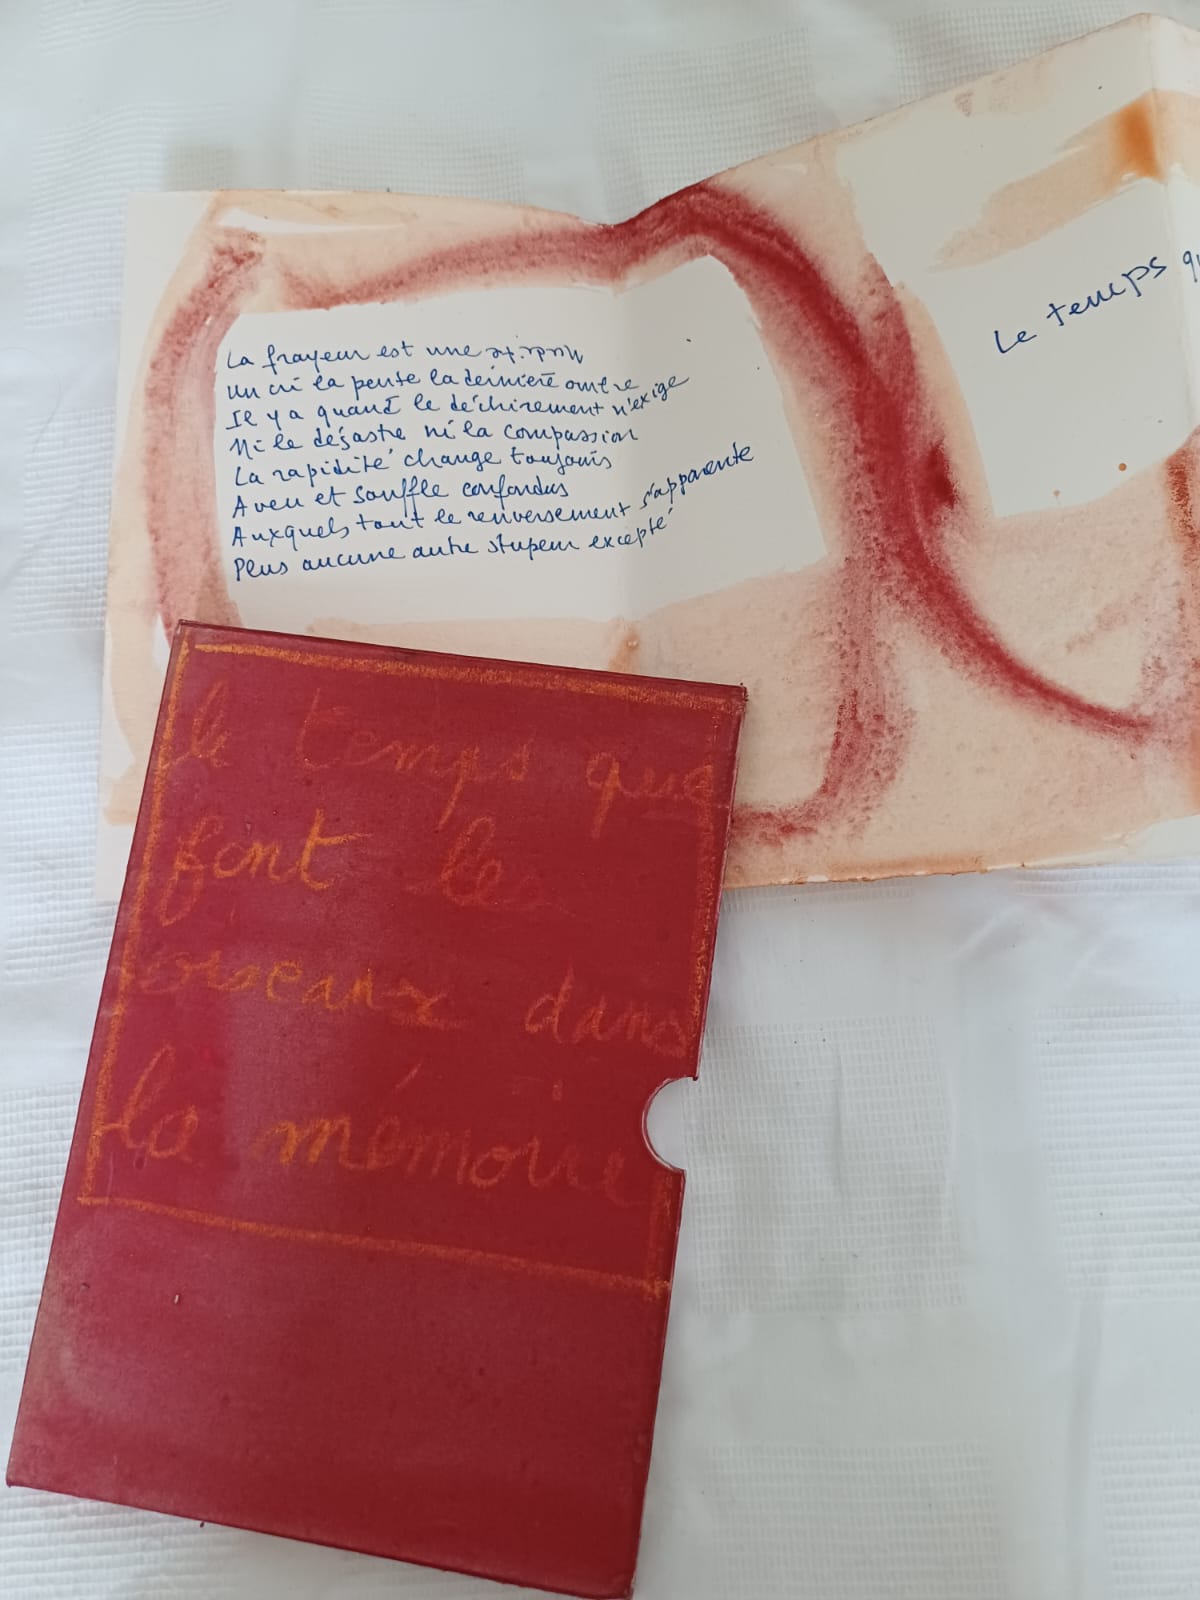 La frayeur est une
Un cri la pente la dernière ombre
Il y a quand le déchirement n'exige
Ni le désastre ni la compassion
La rapidité change toujours
Aveu et souffle confondus
Auxquels tout le renversement s'apparente
Plus aucune autre stupeur excepté
Le temps
le temps que
font les
oiseaux dans
la mémoire